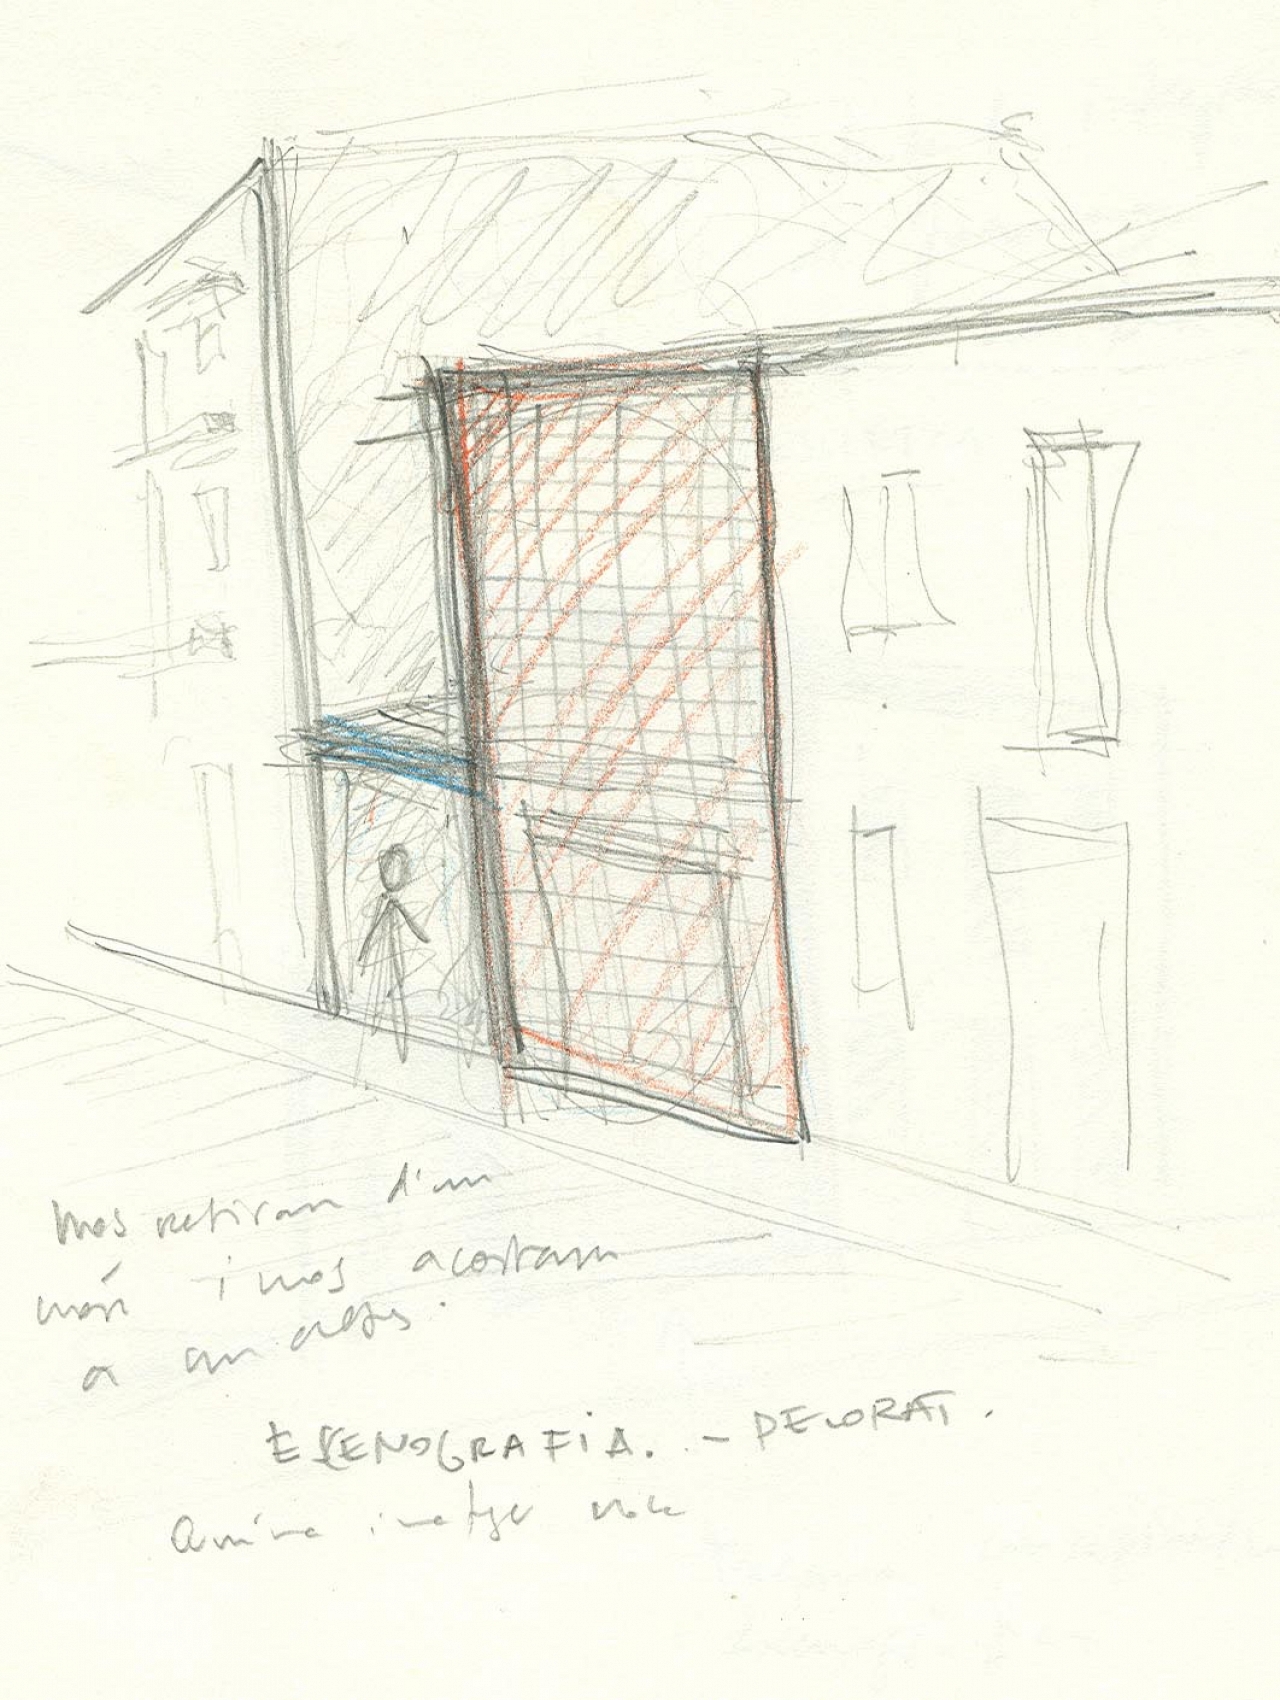 mos retiram d'un
món i mos acostam
a un altre.
ESCENOGRAFIA. - DECORAT.
imatge